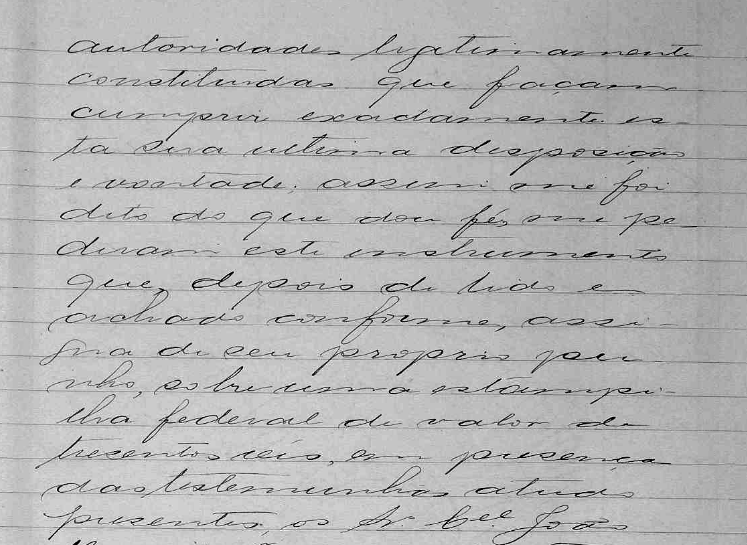 autoridades legitimamente
constituidas que façam
cumprir exactamente es-
ta sua ultima disposição
e vontade; assim me foi
dito do que dou fé, me pe-
diram este instrumento
que, depois de lido e
achado conforme, assi-
gna de seu proprio pu
nho, sobre uma estampi-
lha federal de valor de
tresentos réis, em presença
das testemunhas a tudo
presentes, os Srs Cel João